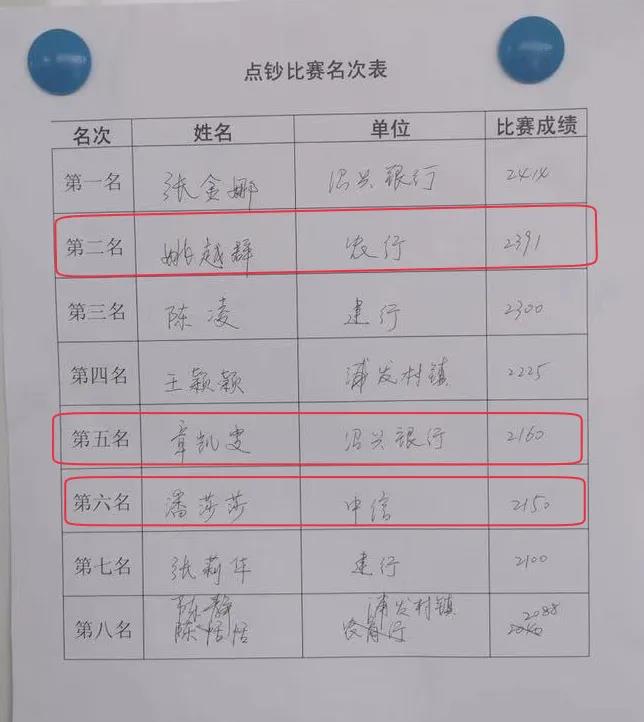 点钞比赛名次表
名次 姓名 单位 比赛成绩
第一名 张金娜 绍兴银行 2414
第二名 姚越群 农行 2391
第三名 陈凌 建行 2300
第四名 王颖颖 浦发村镇 2225
第五名 章凯雯 绍兴银行 2160
第六名 潘莎莎 中信 2150
第七名 张莉华 建行 2100
陈静 浦发村镇 2088
第八名 陈恬恬